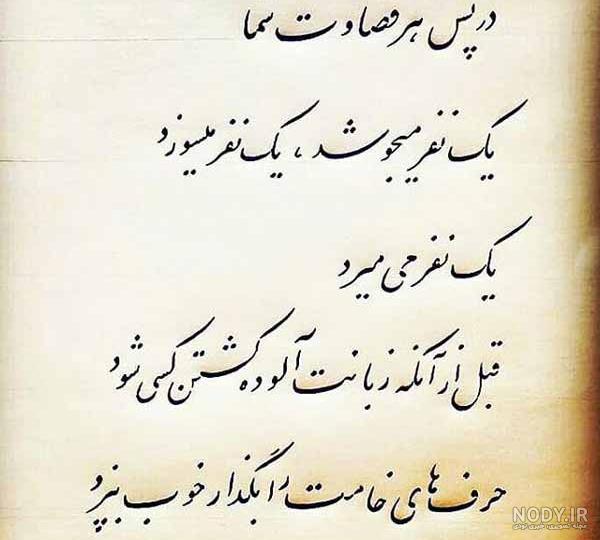 در پس هر قضاوت شما
یک نفر میجوشد ، یک نفر میسوزد
یک نفر می میرد
قبل از آنکه زبانت آلوده کشتن کسی شود
حرف های خامت را بگذار خوب بپزد
NODY.IR
مجله تصویری، خبری نودی